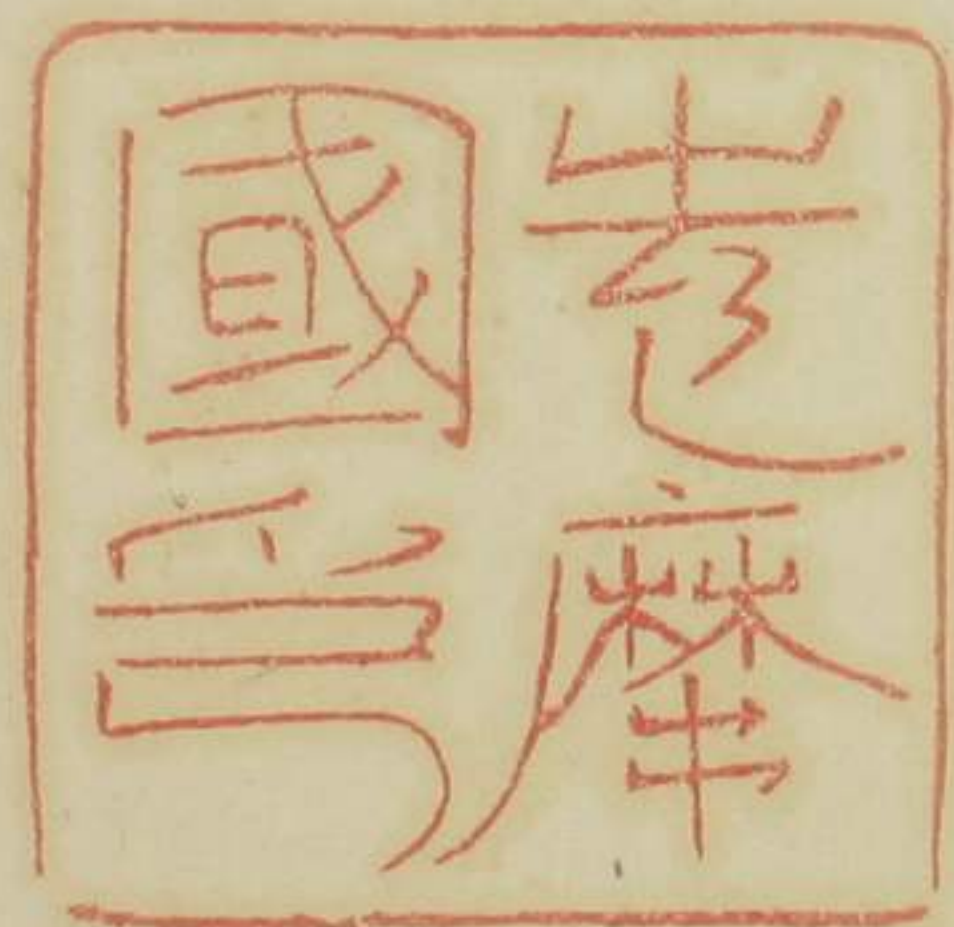 志摩
國印